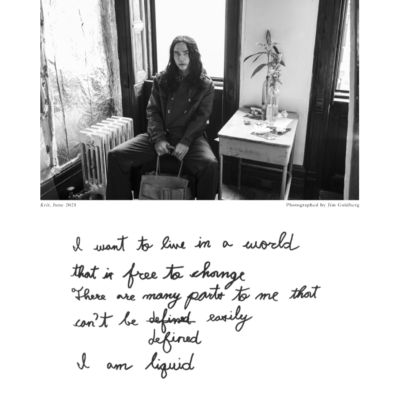 June
Photographed by Jim Goldberg
I want to live in a world
that is free to change
There are many parts to me that
can't be defined easily
defined
I am liquid